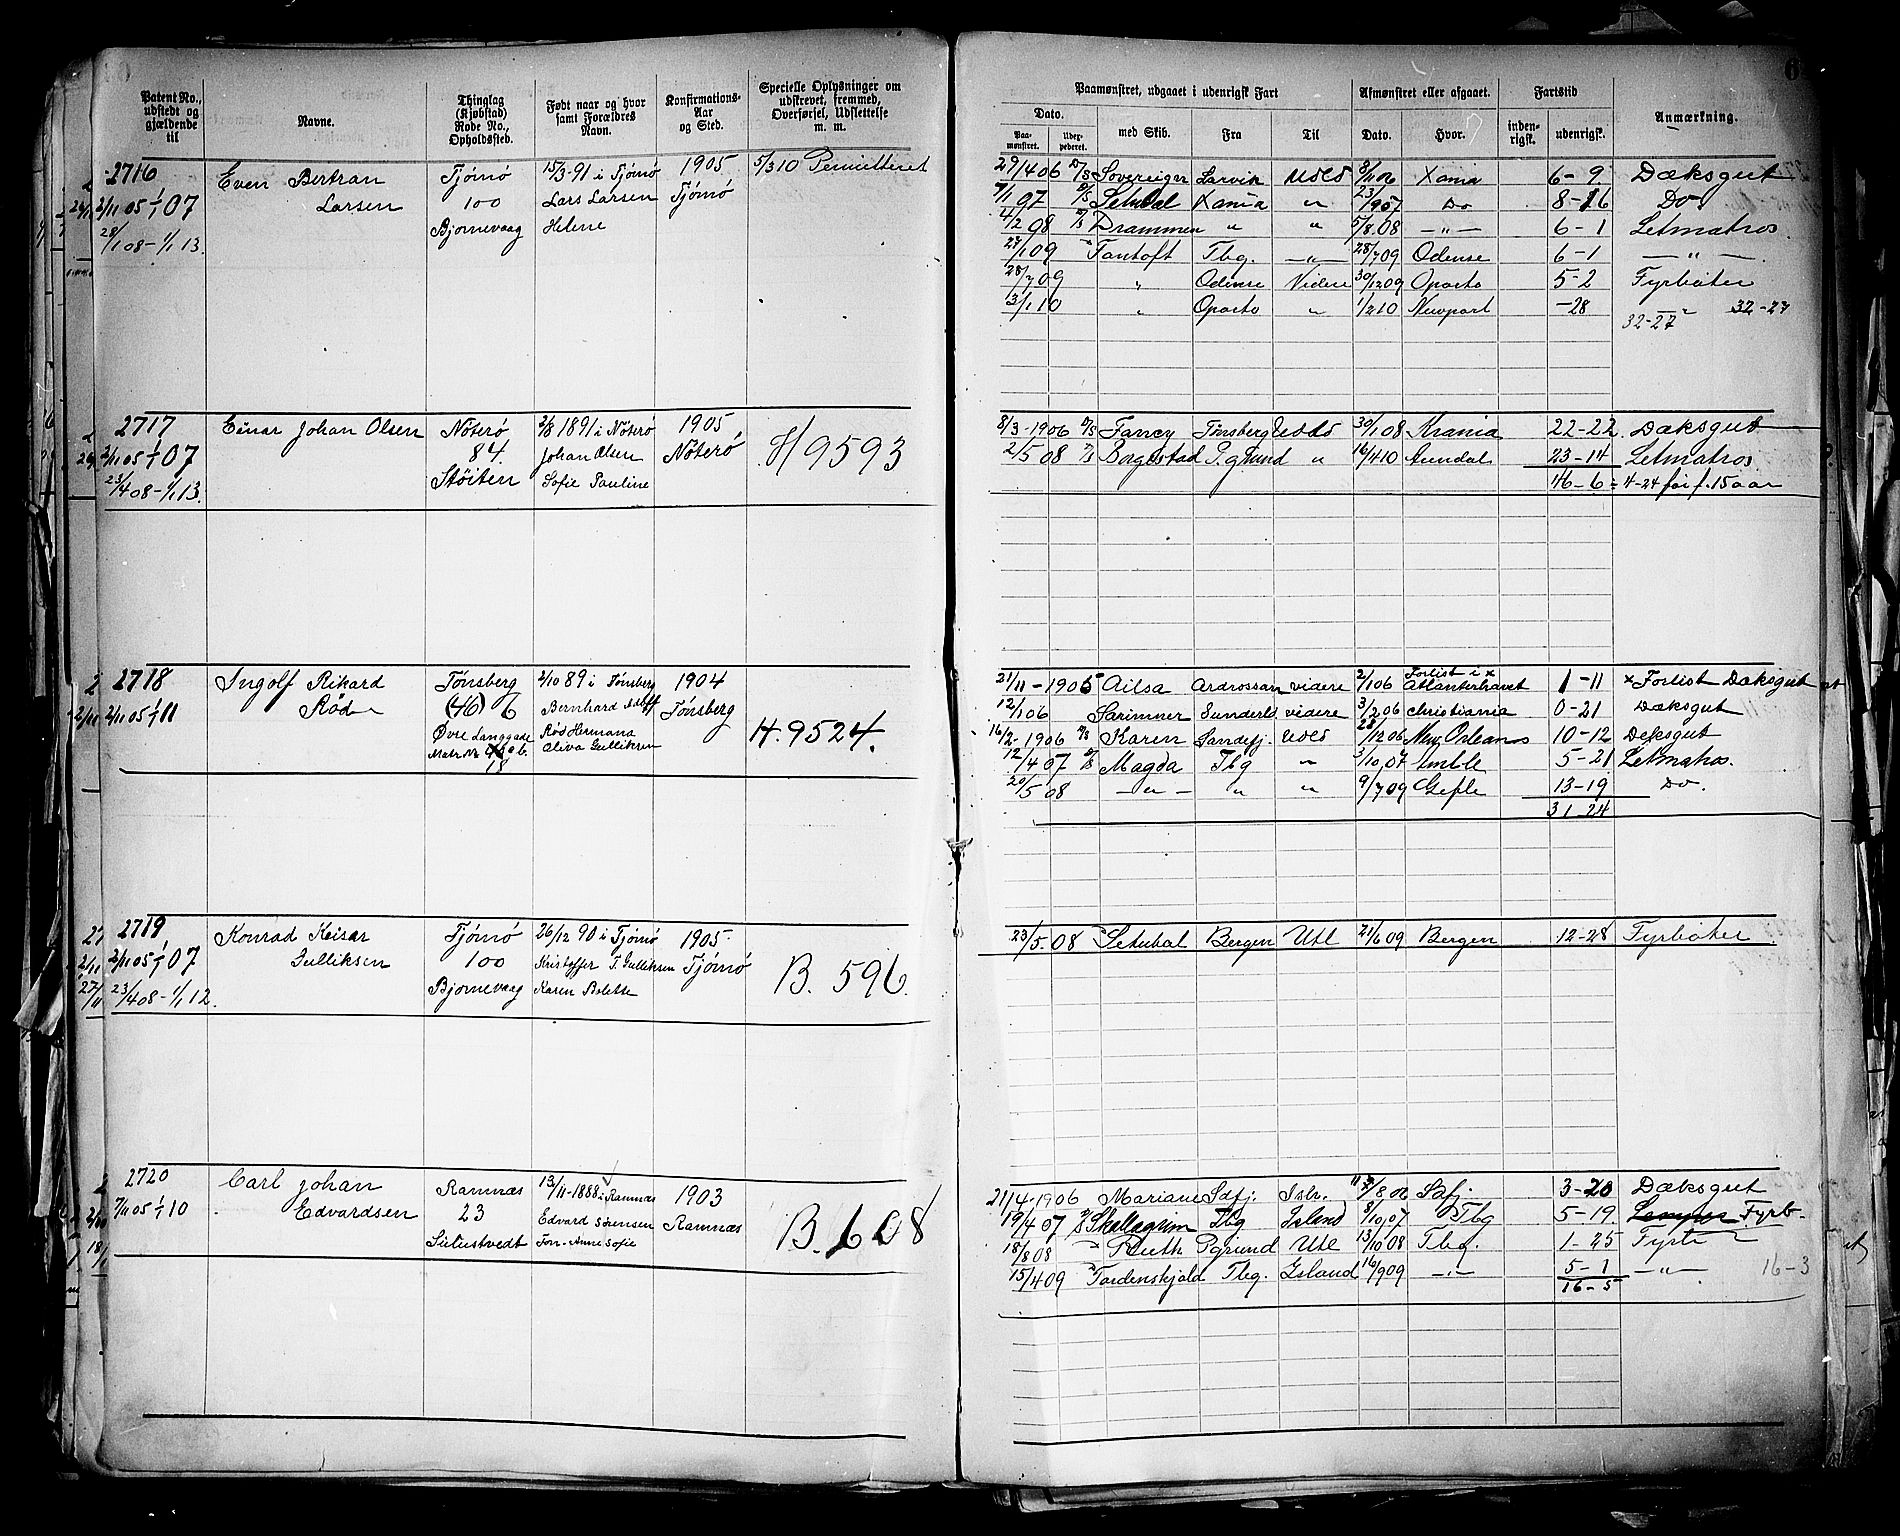 Patent No., udstedt og gjældende til
Navne.
Thinglag (Kjøbstad) Rode No., Opholdssted.
Født naar og hvor samt Forældres Navn.
Konfirmations-Aar og Sted.
Specielle Oplysninger om udskrevet, fremmed, Overførsel, Udslettelse m. m.
2716
2/11 05-1/1 07
28/1 08-1/1 13.
Even Bertran
Larsen
Tjømø
100
Bjørnevaag
15/3-91 i Tjømø
Lars Larsen
Helene
1905
Tjømø
5/3 10 Permitteret
2717
2/11 05-1/1 07
23/4 08-1/1 13.
Einar Johan Olsen
Nøterø
84.
Støiten
2/8 1891 i Nøterø
Johan Olsen
Sofie Pauline
1905
Nøterø
H 9593
2718
2/11 05 1/1 11
Ingolf Rikard
Rød
Tønsberg
(46) 6
Øvre Langgade
2/10 89 i Tønsberg
Bernhard Adolf
Rød Hermana
Oliva Gulliksen
1904
Tønsberg
H. 9524.
2719
2/11 05-1/1 07
23/4 08-1/1 12.
Konrad Keisar
Gulliksen
Tjømø
100
Bjørnevaag
26/12 90 i Tjømø
Kristoffer T. Gulliksen
Karen Bolette
1905
Tjømø
B. 596.
2720
7/11 05-1/1 10
Carl Johan
Edvardsen
Ramnæs
23
13/11-1888 i Ramnæs
Edvard Sørensen
Anne Sofie
1903
Ramnæs
B. 608
6
Paamønstret, udgaaet i udenrigsk Fart
Afmønstret eller afgaaet.
Fartstid
Anmærkning.
Dato.
Paa-mønstret.
Uder-pederet.
med Skib.
Fra
Til
Dato.
Hvor.
inden-rigsk.
udenrigsk.
29/4 06 D/S Sovereign Larvik Udls 8/11 06 Xania 6-9 Dæksgut
7/1 07 D/S Setubal Xania " 23/9 1907 Do 8-16 Do
4/2 08 D/S Drammen " " 5/8.08 -"- 6-1 Letmatros
27/1 09 " Tantoft Tbg. -"- 28/7 09 Odense 6-1 -"-
28/7 09 " Odense Videre 30/12 09 Oporto 5-2 Fyrbøter
13/1 10 " Oporto " 1/2 10 Newport -28 "
32-27 32-27
8/3-1906 D/S Fancy Tønsberg Udls 30/1 08 Krania 22-22. Dæksgut
2/5 08 D/S Borgestad P.grund " 16/4 10 Arendal 23-14 Letmatros
46-6 = 4-24 før f. 15 aar
21/11-1905 Ailsa Ardrossan videre 2/1 06 Forlist i x Atlanterhavet 1-11 x Forlist Dæksgut
12/1 06 Sarimner Sunderld videre 3/2 06 Christiania 0-21 Dæksgut
16/2-1906 D/S Karen Sandefj. Udls 28/12 06 New Orleans 10-12 Deksgut
12/4 07 D/S Magda Tbg " 3/10 07 5-21 Letmatros.
20/5 08 -"- " " 9/7 09 Gefle 13-19 Do.
31-24
23/5.08 " Setubal Bergen Utl 21/6 09 Bergen 12-28 Fyrbøter
21/4-1906 Mariane Sdfj. Islr. 8/06 Sdfj. 3-20 Dæksgut
19/4 07 D/S Skallagrim Tbg Island 8/10.07 Tbg 5-19. Fyrb-
18/8 08 " Ruth Pgrund Utl 13/10 08 Tbg. 1-25 Fyrb
15/4 09 " Tordenskjold Tbg. Island 16/9 09 -"- 5-1 -"- 16-3
16-5